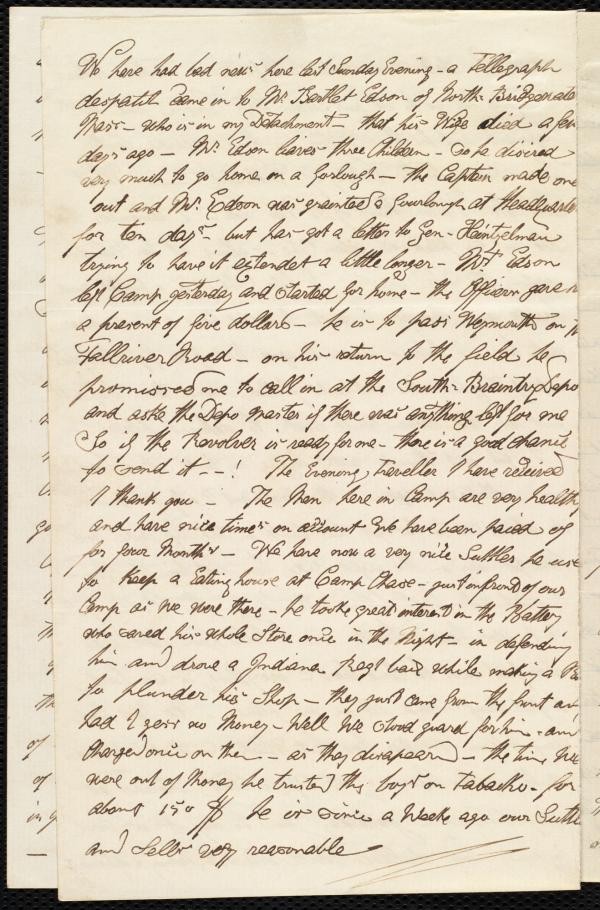 We have had bad news here last Sunday Evening - a Tellegraph
despatch came in to Mr Bartlet Edson of North: Bridgewate
Mass - who is in my Detachment - that his Wife died a few
days ago - Mr. Edson leaves three Children - So he disired
very much to go home on a forlough - the Captain made one
out and Mr. Edson was grainted a Fourlough at Headquarte
for ten days - but has got a letter to Gen - Heintzelman
trying to have it extendet a little longer - Mr. Edson
left Camp yesterday and started for home - the Officers gave
a present of five dollars - he is to pass Weymouth on
Fallriver Road - on his return to the field he
promissed me to call in at the South: Braintry Depo
and aske the Depo Master if there was anything left for me
So if the Revolver is ready for me - there is a good chance
to send it. - ! The Evening Traveller I have received
I thank you - The Men here in Camp are very healthy
and have nice times on account we have been paid of
for four Months - We have now a very nice Suttler he use
to keep a Eating house at Camp Chase - just in front of our
Camp as we were there - he tooke great interest in the Battery
who saved his whole Store once in the Night - in defending
him and drove a Indiana Regt back while making a
to plunder his Shop - they just came from the front an
had I gess no Money - Well We stood guard for him - and
Charged once on them - as they disapeared - the time We
were out of Money he trusted the boys on Tabacko - for
about 150 $ he is since a Week ago our Suttl
and Sells very reasonable